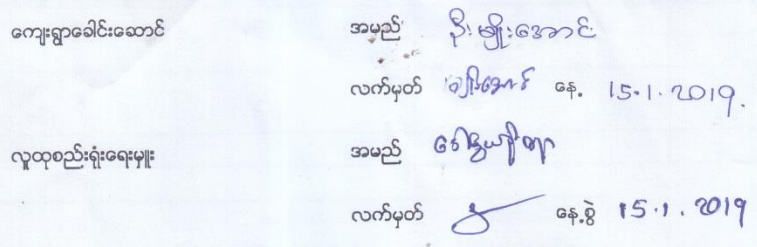 ကျေးရွာခေါင်းဆောင် အမည် ဦးမျိုးအောင်
လက်မှတ် မျိုးအောင် နေ့ 15.1.2019.
လူထုစည်းရုံးရေးမှူး အမည် ဒေါ်
လက်မှတ် နေ့စွဲ 15.1.2019